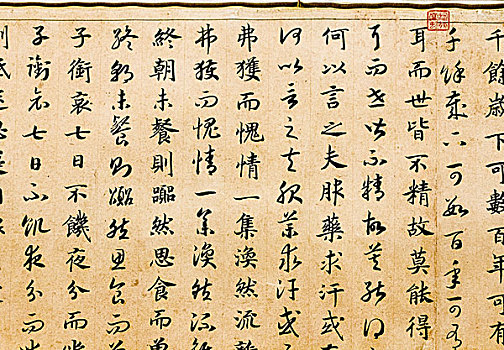 千餘歲下可數百年可有
千餘歲下可數百年可有
耳而世皆不精故莫能得
耳而世皆不精故莫能得
何以言之夫服藥求汗或
何以言之夫服藥求汗或
弗獲而愧情一集渙然流
弗獲而愧情一集渙然流
終朝未餐則嚻然思食而曾
終朝未餐則嚻然思食而曾
子銜哀七日不饑夜分而坐
子銜哀七日不饑夜分而坐